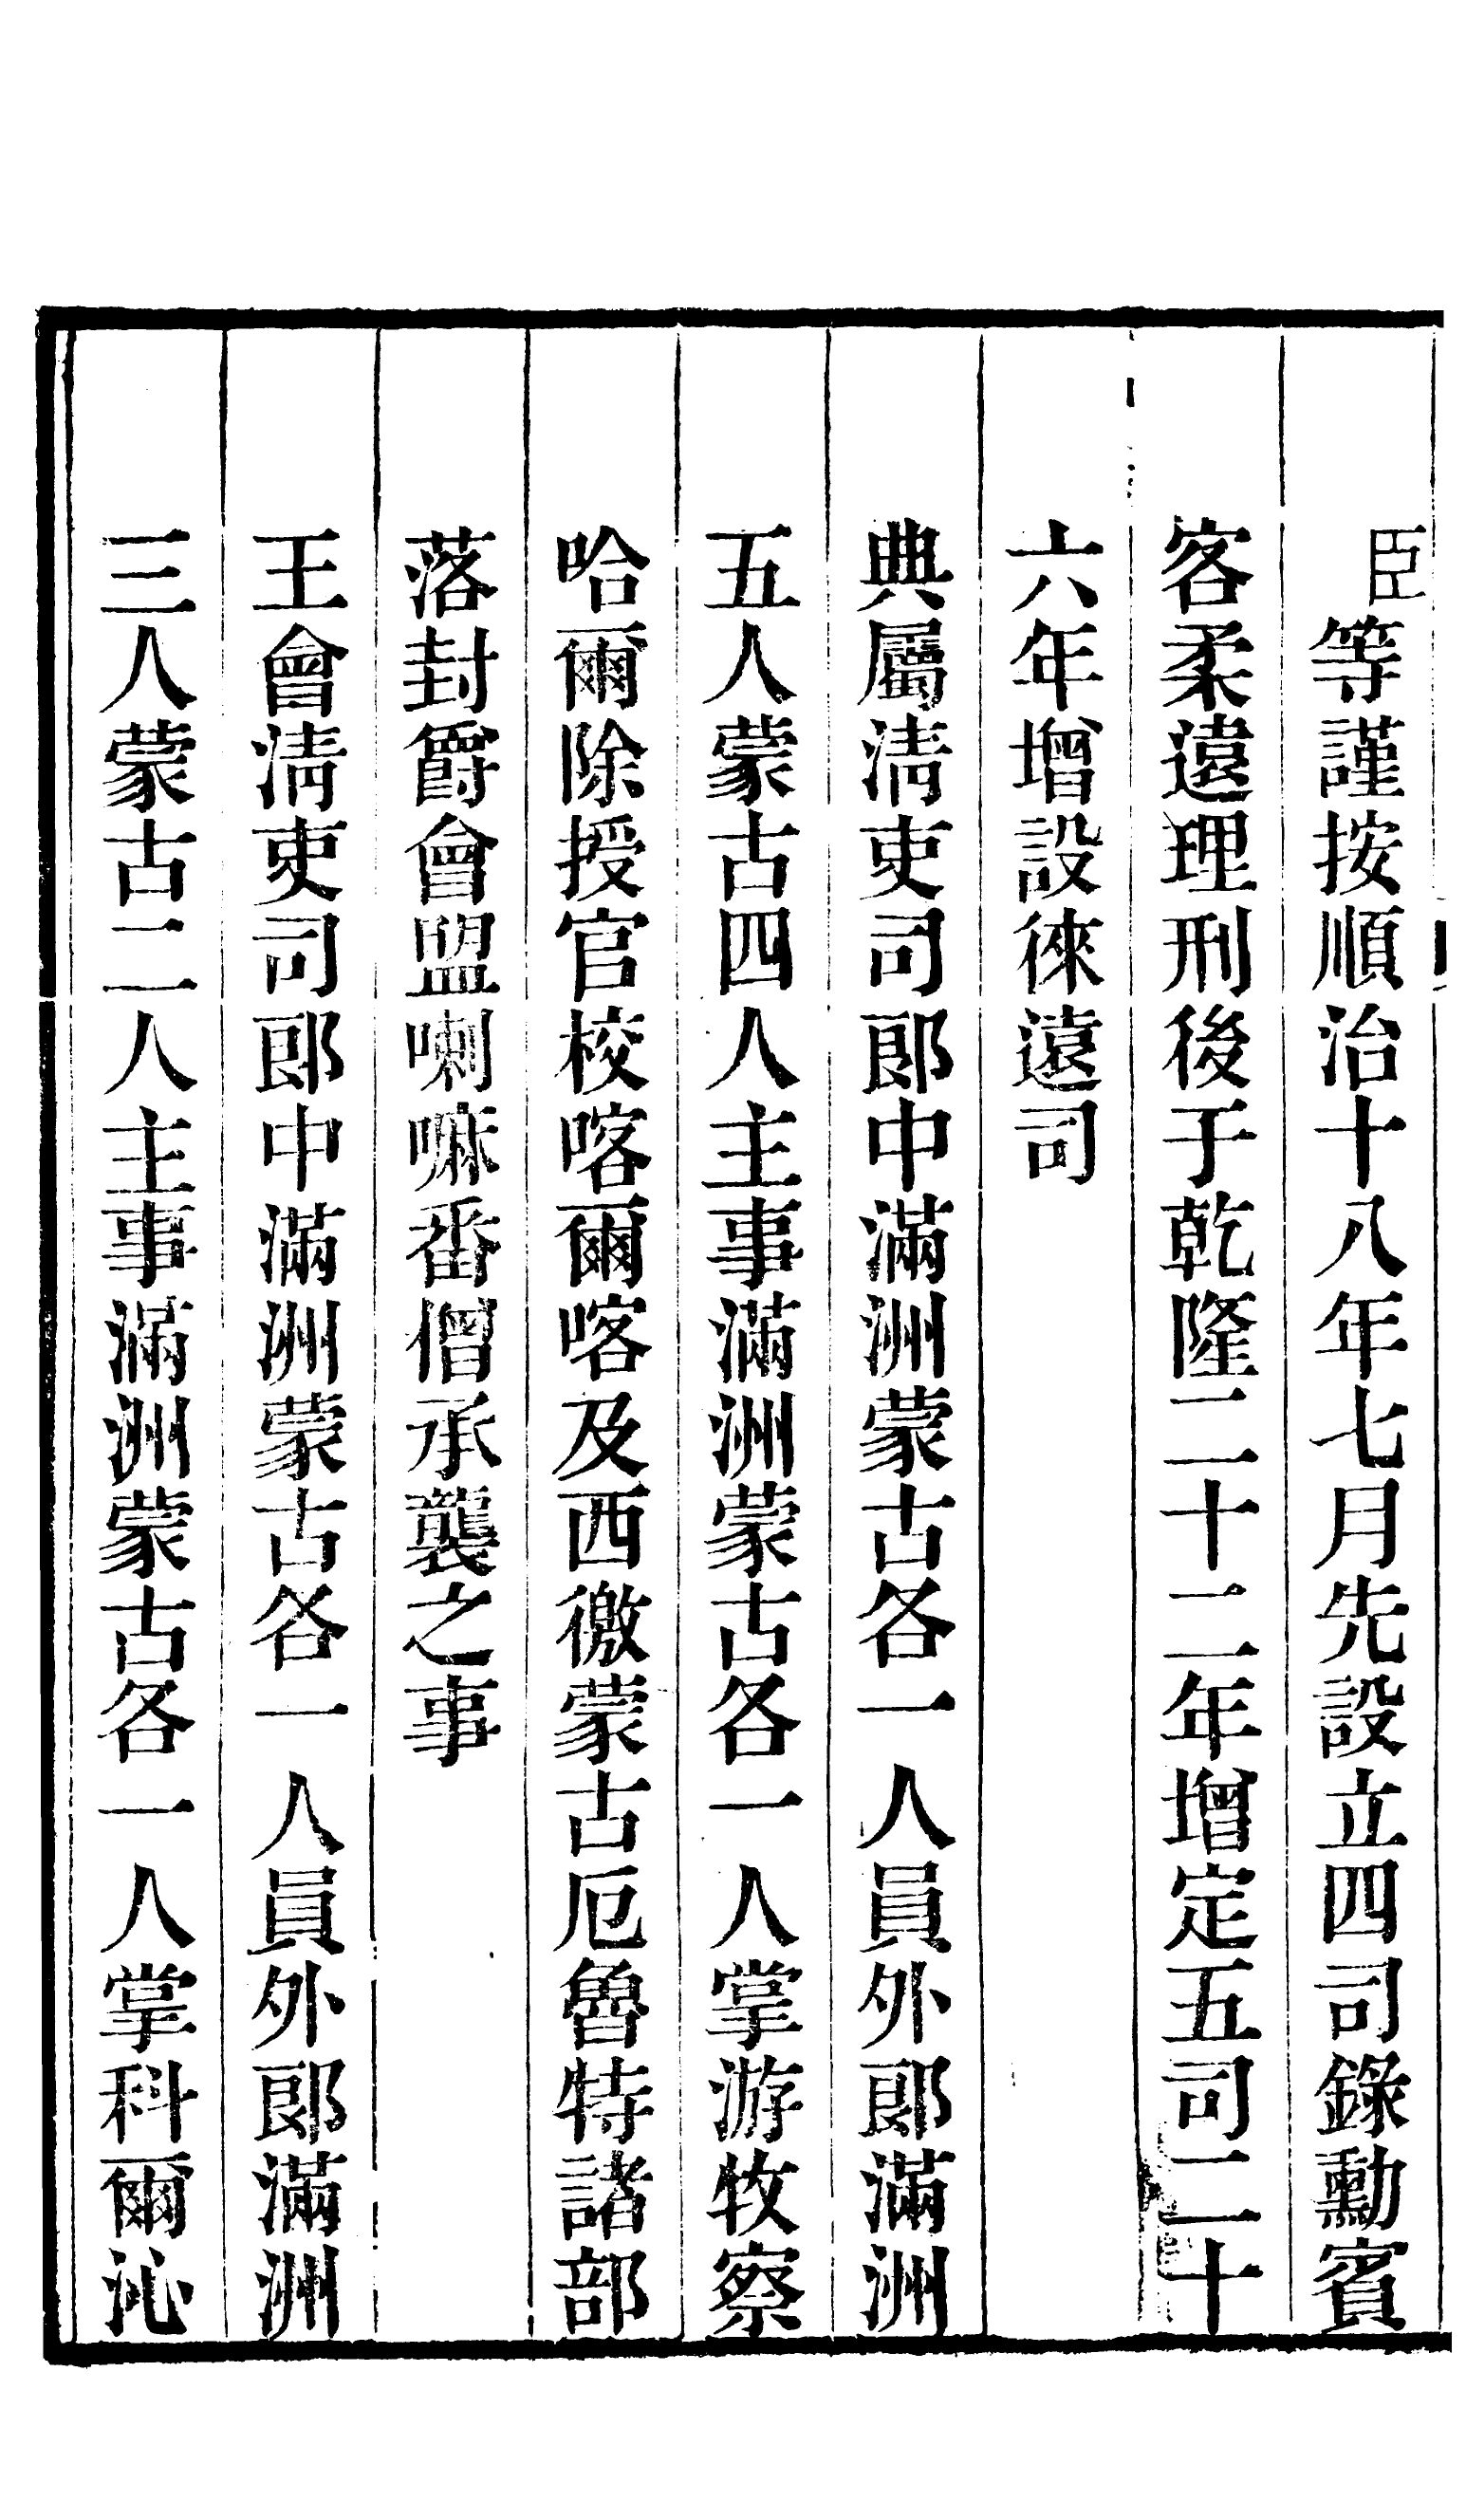 臣等謹按順治十八年七月先設立四司錄勳賓
客柔遠理刑後于乾隆二十二年增定五司二十
六年增設徠遠司
典屬淸吏司郎中滿洲蒙古各一人員外郎滿洲
五人蒙古四人主事滿洲蒙古各一人掌游牧察
哈爾除授官校喀爾喀及西徼蒙古厄魯特諸部
落封爵會盟喇嘛番僧承襲之事
王會淸吏司郎中滿洲蒙古各一人員外郎滿洲
三人蒙古二人主事滿洲蒙古各一人掌科爾沁